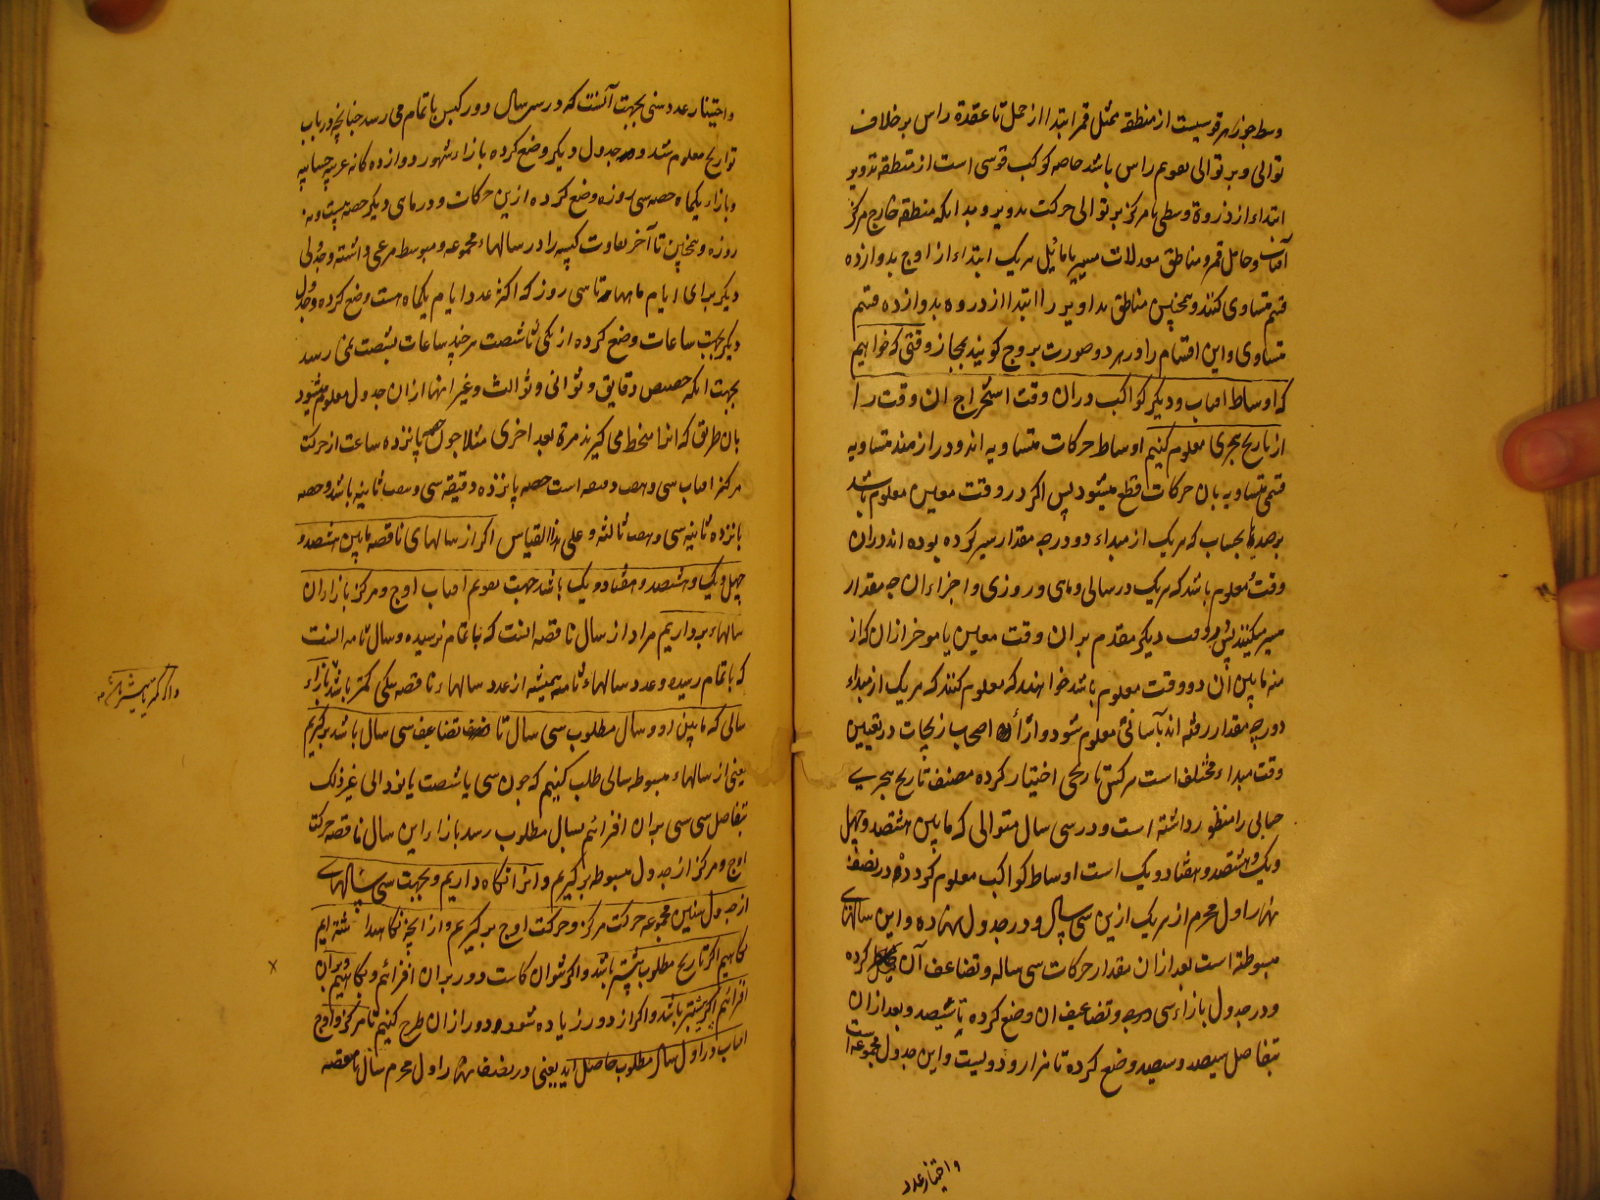 وسط جوزهر قوسیست از منطقه ممثل قمر ابتدا از حمل تا عقدهٔ راس بر خلاف
توالی و بر توالی تقویم راس باشد خاصه کوکب قوسی است از منطقه تدویر
ابتداء از ذروهٔ وسطی تا مرکز بر توالی حرکت تدویر و بدانکه منطقه خارج مرکز
آفتاب و حامل قمر و مناطق معدلات مسیر یا مائل هریک ابتداء از اوج بدوازده
قسم متساوی کنند و همچنین مناطق تداویر را ابتدا از ذروه بدوازده قسم
متساوی و این اقسام را در هر دو صورت بروج کویند بمجاز وقتی که خواهیم
که اوساط افتاب و دیکر کواکب دران وقت استخراج ان وقت را
از تاریخ هجری معلوم کنیم اوساط حرکات متشابه اند و در ازمنه متساویه
قسی متساویه بان حرکات قطع میشود پس اکر در وقت معین معلوم باشد
برصد یا بحساب که هریک از مبداء دور چه مقدار سیر کرده بوده اند دران
وقت و معلوم باشد که هریک در سالی و ماهی و روزی و اجزاء ان چه مقدار
سیر میکنند پس در وقت دیکر مقدم بران وقت معین یا موخر ازان که از
منه مابین ان دو وقت معلوم باشد خواهند که معلوم کنند که هریک از مبداء
دور چه مقدار رفته اند بآسانی معلوم شود و اراء اصحاب زیجات در تعیین
وقت مبداء مختلف است هرکس تاریخی اختیار کرده مصنف تاریخ هجری
حسابی را منظور داشته است و در سی سال متوالی که مابین هشتصد و چهل
ویک و هشتصد و هفتاد و یک است اوساط کواکب معلوم کرده در نصف
نهار اول محرم از هریک ازین سی سال و در جدول نهاده و این سالهای
مبسوطه است بعد ازان مقدار حرکات سی ساله و تضاعیف آن کرده
و در جدول بازاء سی و تضاعیف ان وضع کرده تا ششصد و بعد ازان
بتفاضل سیصد و سیصد وضع کرده تا هزار و دویست و این جدول مجموعه است
واختیار عدد
واختیار عدد سنی بجهت آنست که در سی سال دور کبس باتمام می رسد چنانچه در باب
تواریخ معلوم شد و جدول دیکر وضع کرده بازاء شهور دوازده کانه عربیه حسابیه
و بازاء یکماه حصه سی روزه وضع کرده ازین حرکات و در ماهی دیکر حصه بیست و نه
روزه و همچنین تا آخر تفاوت کبیسه را در سالهاء مجموعه و مبسوطه مرعی داشته و جدولی
دیکر برای ایام ماهها تا سی روز که اکثر عدد ایام یکماه است وضع کرده و جدول
دیکر بجهت ساعات وضع کرده از یکی تا شصت هرچند ساعات بشصت نمی رسد
بجهت انکه حصص دقایق و ثوانی و ثوالث و غیر انها ازان جدول معلوم میشود
بان طریق که انرا منحط می کیرند مرة بعد اخری مثلا چون حصه پانزده ساعت از حرکت
مرکز افتاب سی و هفت دقیقه است حصه پانزده دقیقه سی و هفت ثانیه باشد و حصه
پانزده ثانیه سی و هفت ثالثه و علی هذا القیاس اکر از سالهای ناقصه مابین هشتصد و
چهل ویک و هشتصد و هفتاد و یک باشد جهت تقویم افتاب اوج و مرکز بازاء ان
سالهاء برداریم مراد از سال ناقصه انست که باتمام نرسیده و سال تامه انست
که باتمام رسیده و عدد سالهاء تامه همیشه از عدد سالهاء ناقصه بیکی کمتر باشد بازاء
سالی که مابین او و سال مطلوب سی سال تا تضاعیف سی سال باشد برکیریم
یعنی از سالهاء مبسوطه سالی طلب کنیم که چون سی یا شصت یا نود الی غیر ذلک
بتفاضل سی سی بران افزائیم بسال مطلوب رسد بازاء این سال ناقصه حرکت
اوج و مرکز از جدول مبسوطه برکیریم و انرا نکاه داریم و بجهت سی سالهای
از جدول سنین مجموعه حرکت مرکز و حرکت اوج برکیریم و از انچه نکاهداشته ایم
بکاهیم اکر تاریخ مطلوب پیشتر باشد و اکر نتوان کاست دور بران افزائیم و بکاهیم و بران
افزائیم اکر بیشتر باشد و اکر از دور زیاده شود دور ازان طرح کنیم تا مرکز و اوج
افتاب در اول سال مطلوب حاصل اید یعنی در نصف نهار اول محرم سال ناقصه